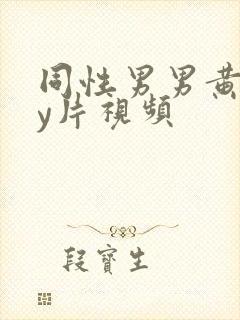 同性男男黃
y片視頻
段寶生